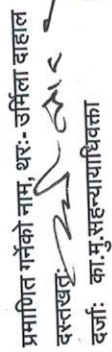 प्रमाणित गर्नेको नाम, थरः- उर्मिला दाहाल
दस्तखतः
दर्जाः का.मु.सहन्यायाधिवक्ता